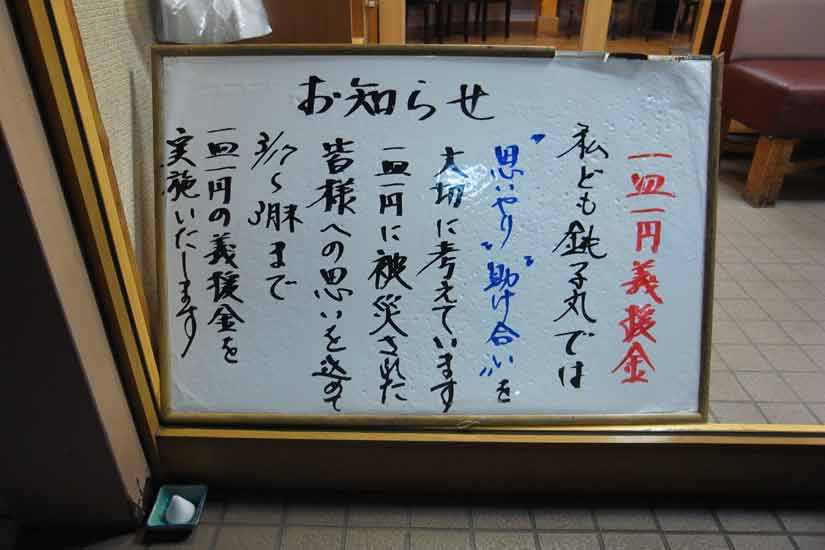 お知らせ
一皿一円義援金
私ども銚子丸では
"思いやり""助け合い"を
大切に考えています
一皿一円に被災された
皆様への思いを込めて
3/17～3月末まで
一皿一円の義援金を
実施いたします